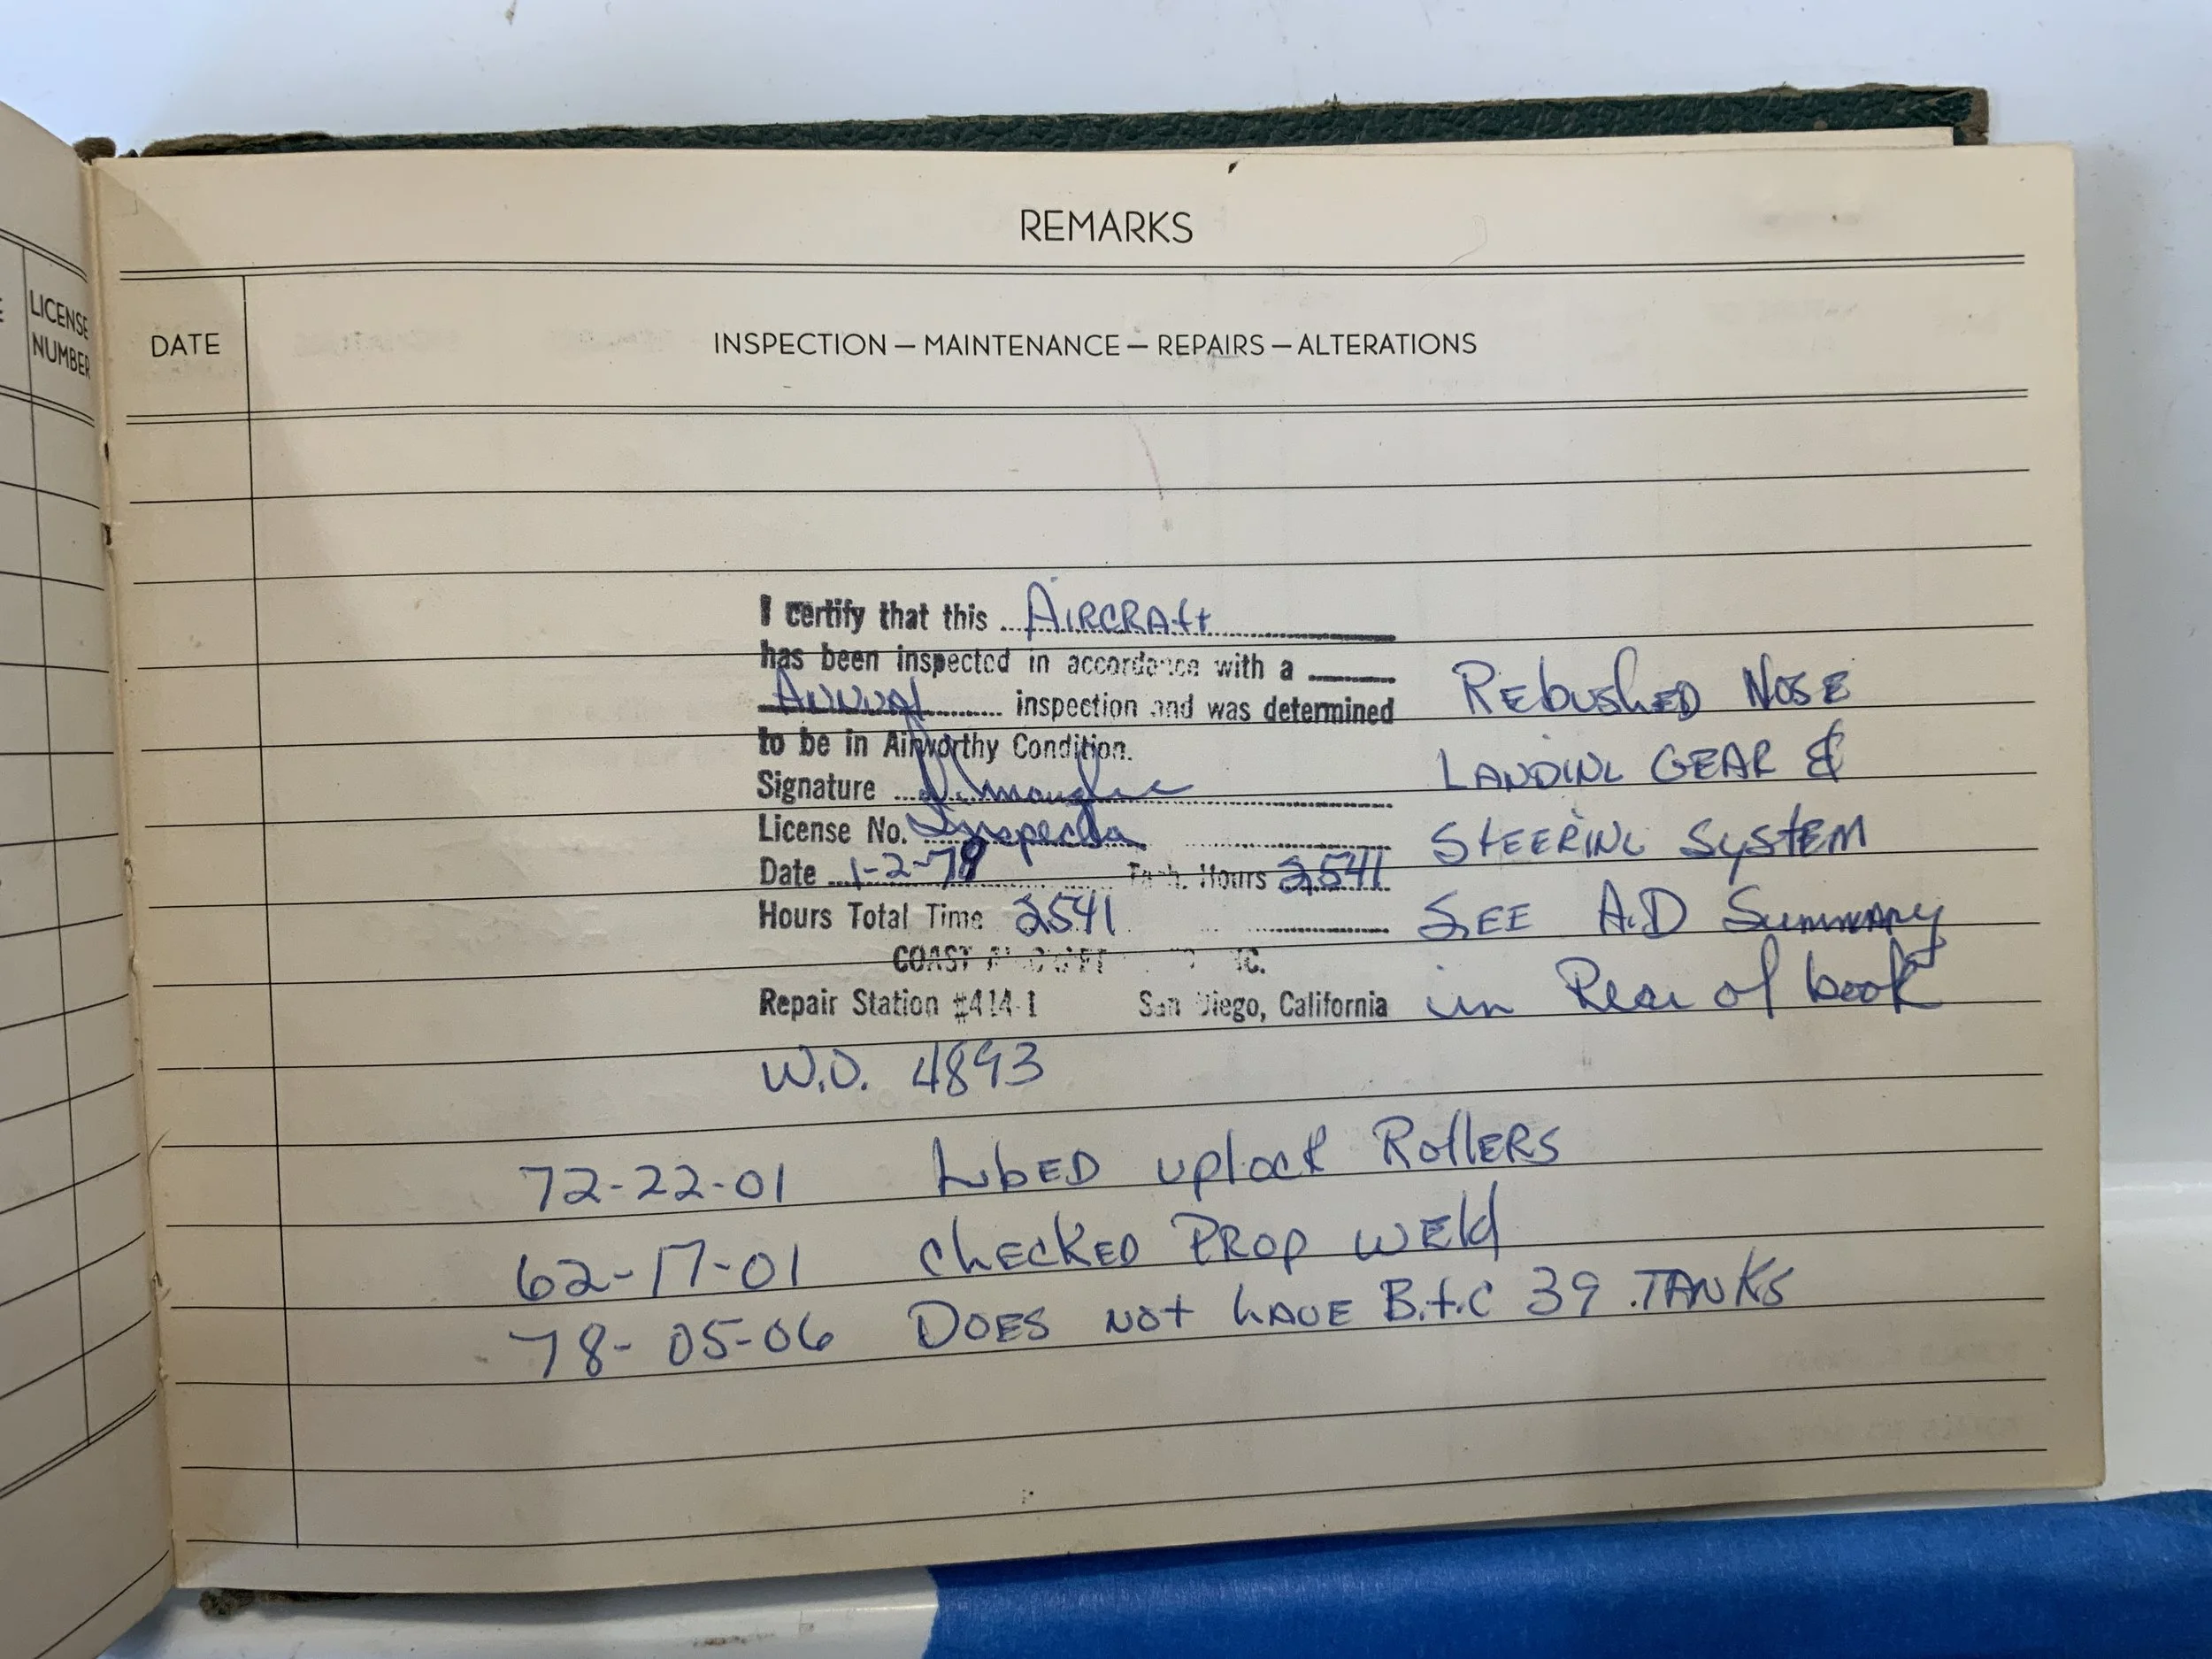 REMARKS
LICENSE
NUMBER
DATE
INSPECTION — MAINTENANCE — REPAIRS — ALTERATIONS
I certify that this AIRCRAft
has been inspected in accordance with a
ANNUAL inspection and was determined
to be in Airworthy Condition.
Signature
License No. Inspector
Date 1-2-79 Tach. Hours 2541
Hours Total Time 2541
COAST AIRCRAFT INC.
Repair Station #414-1 San Diego, California
REbusHED NOSE
LANDING GEAR &
STEERING SYSTEM
SEE A.D Summary
in Rear of book
W.O. 4893
72-22-01 LubED uplock RollERS
62-17-01 CHECKED PROP WEld
78-05-06 DOES NOt HAVE B.t.C 39 TANKS